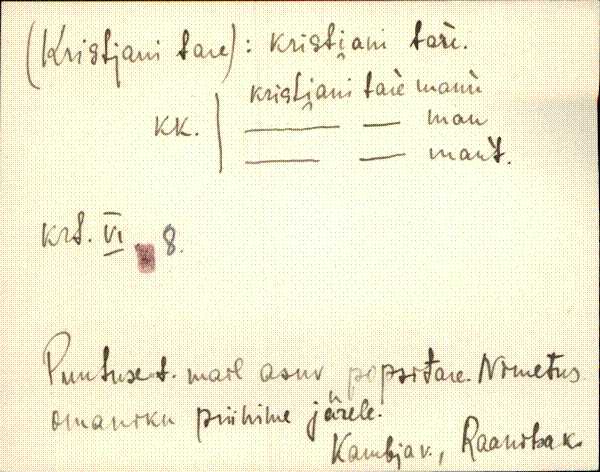 (Kristjani tare): kristi̯ani tarè.
kristi̯ani tarè manù
KK. — — man
— — mant.
krt. VI 8.
Puntuse t. maal asuv popsitare. Nimetus
omaniku priinime järele.
Kambja v., Raanitsa k.